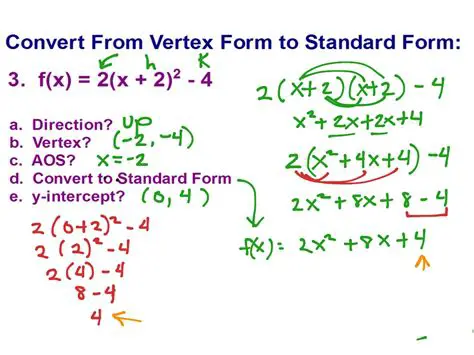 Convert From Vertex Form to Standard Form:
h K
3. f(x) = 2(x + 2)² - 4
a. Direction? up
b. Vertex? (-2, -4)
c. AOS? x = -2
d. Convert to Standard Form
e. y-intercept? (0, 4)
2(0+2)² - 4
2(2)² - 4
2(4) - 4
8 - 4
4
2(x+2)(x+2) - 4
x² + 2x + 2x + 4
2(x² + 4x + 4) - 4
2x² + 8x + 8 - 4
f(x) = 2x² + 8x + 4